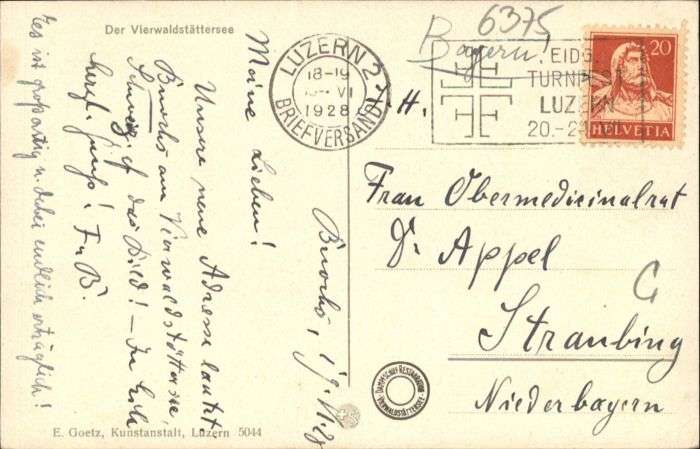 Der Vierwaldstättersee
Buochs,
Meine Lieben!
Unsere neue Adresse lautet:
Buochs am Vierwaldstättersee,
Schweiz, das Bild! – In Eile
herzl. Gruß! F u B.
Es ist großartig u. dabei endlich erträglich!
LUZERN 2
18-19
VI
1928
BRIEFVERSAND
EIDG.
TURNFEST
LUZERN
20.-2
20
HELVETIA
6375
Bayern!
H.
Frau Obermedicinalrat
D. Appel
C
Straubing
Niederbayern
DAMPFSCHIFF RESTAURATION
VIERWALDSTÄTTERSEE
E. Goetz, Kunstanstalt, Luzern 5044